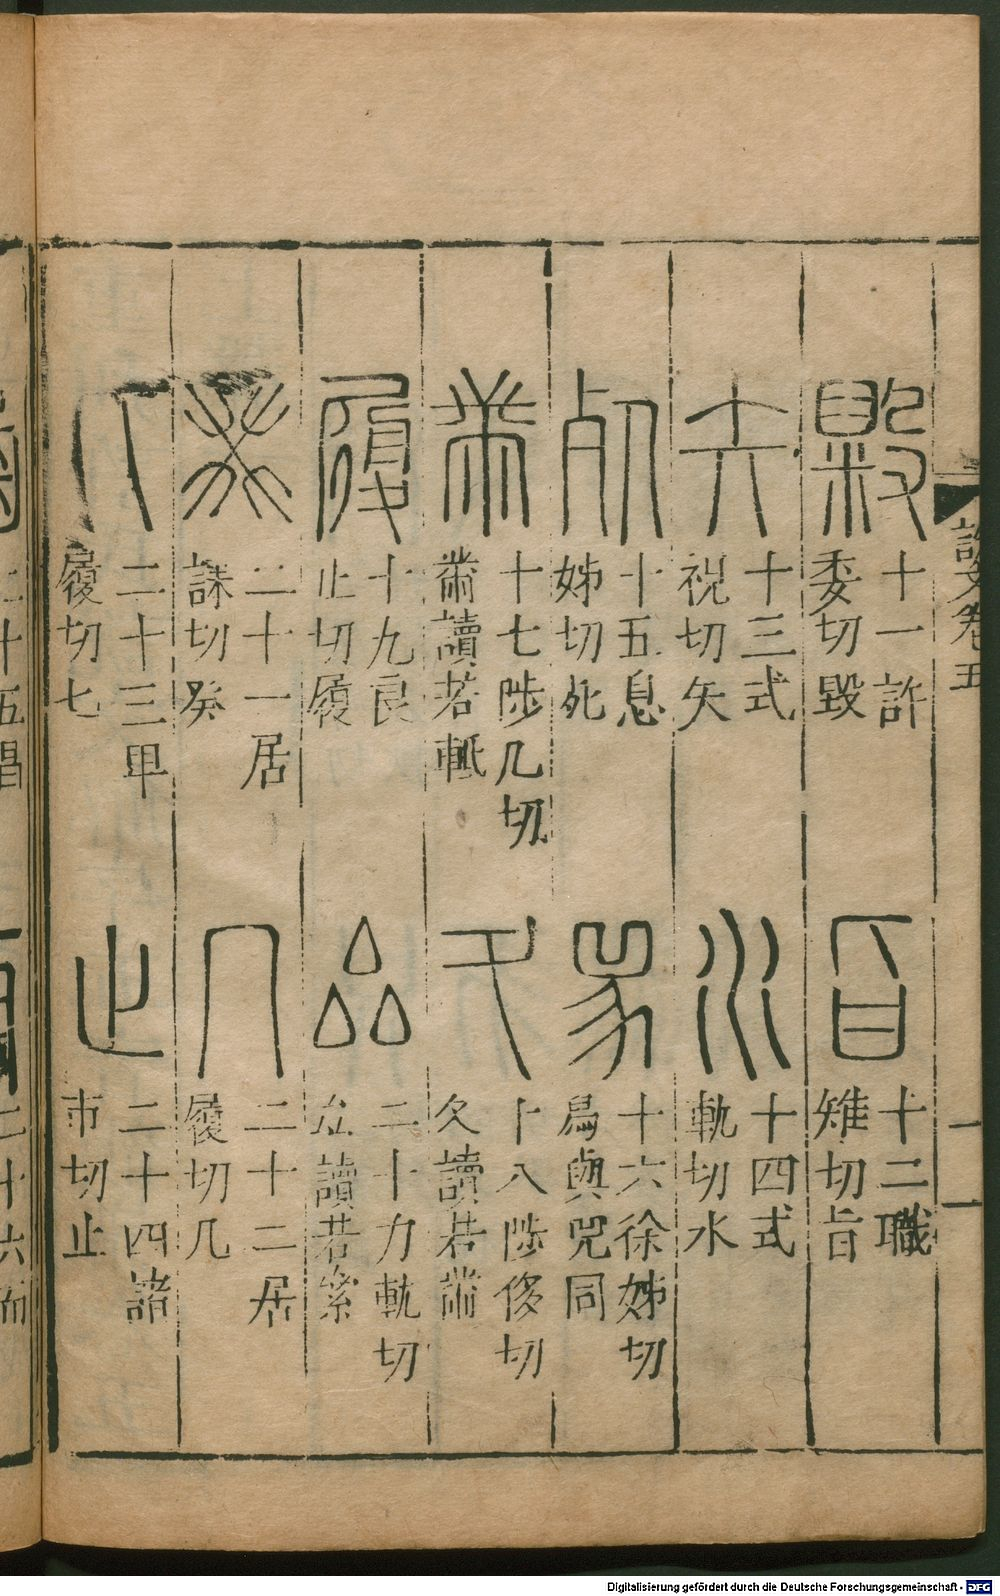 說文卷五
毇
十一許
委切毀
旨
十二職
雉切旨
矢
十三式
視切矢
水
十四式
軌切水
死
十五息
姊切死
十六徐姊切
與兕同
黹
十七陟几切
黹讀若軧
夂
十八陟侈切
夂讀若黹
履
十九良
止切履
厽
二十力軌切
厽讀若絫
癸
二十一居
誄切癸
几
二十二居
履切几
匕
二十三卑
履切匕
止
二十四諸
市切止
二十五昌
二十六而
Digitalisierung gefördert durch die Deutsche Forschungsgemeinschaft - DFG